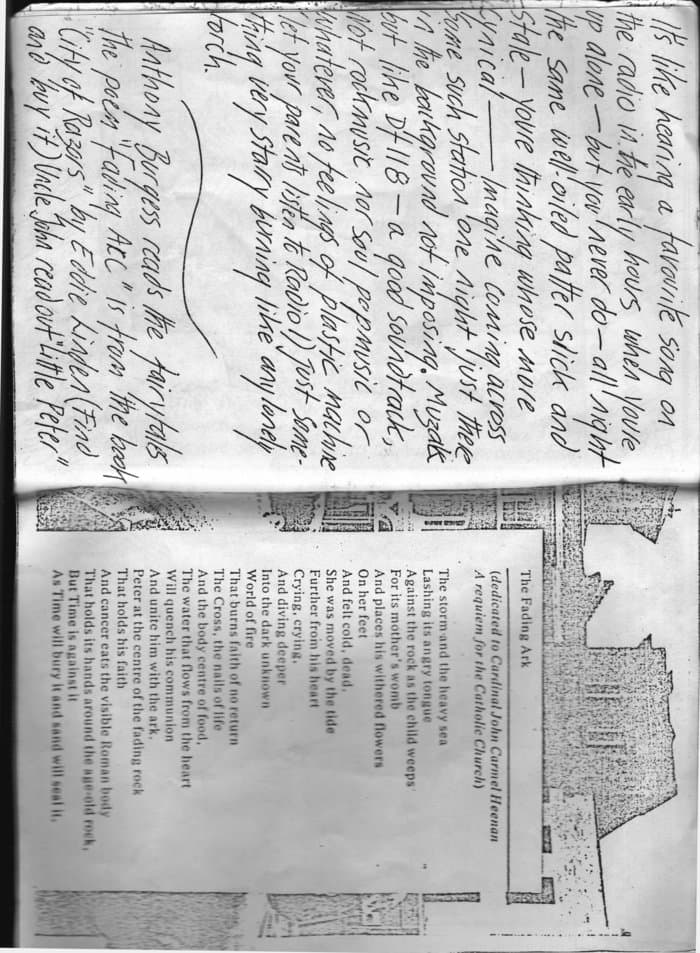 It's like hearing a favourite song on
the radio in the early hours when you're
up alone — but you never do — all night
the same well-oiled patter slick and
stale — you're thinking whose more
cynical —— Imagine coming across
some such station one night / just there
in the background not imposing. Muzak
but like DF118 — a good soundtrack,
Not rockmusic nor soul popmusic or
whatever, no feelings of plastic machine
(let your parents listen to Radio 1) just some-
thing very starry burning like any lonely
torch.
Anthony Burgess reads the fairytales
The poem "Fading ARC" is from the book
"City of Razors" by Eddie Linden (Find
and buy it) Uncle John read out "Little Peter"
The Fading Ark
(dedicated to Cardinal John Carmel Heenan
A requiem for the Catholic Church)
The storm and the heavy sea
Lashing its angry tongue
Against the rock as the child weeps
For its mother's womb
And places his withered flowers
On her feet
And felt cold, dead.
She was moved by the tide
Further from his heart
Crying, crying,
And diving deeper
Into the dark unknown
World of fire
That burns faith of no return
The Cross, the nails of life
And the body centre of food,
The water that flows from the heart
Will quench his communion
And unite him with the ark,
Peter at the centre of the fading rock
That holds his faith
And cancer eats the visible Roman body
That holds its hands around the age-old rock,
But Time is against it
As Time will bury it and sand will seal it.